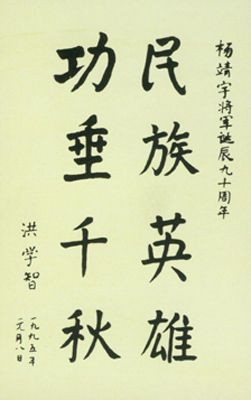 杨靖宇将军诞辰九十周年
民族英雄
功垂千秋
洪学智
一九九五年
元月八日